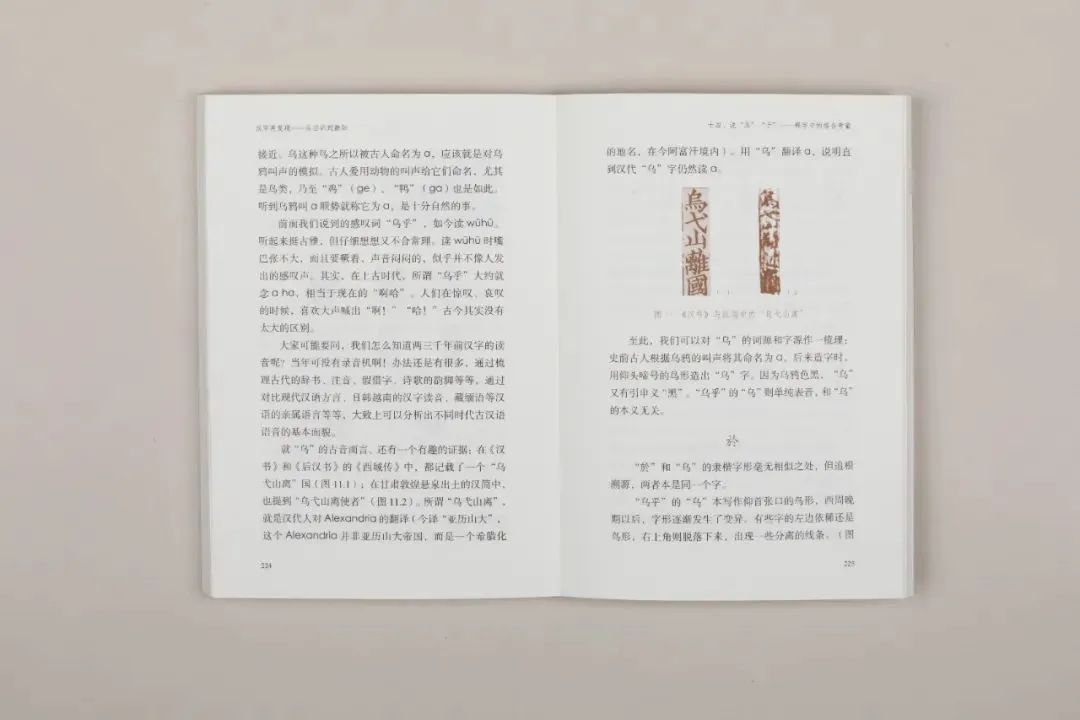 汉字再发现——从旧识到新知
接近。乌这种鸟之所以被古人命名为 a，应该就是对乌
鸦叫声的模拟。古人爱用动物的叫声给它们命名，尤其
是鸟类，乃至“鸡”（ge）、“鸭”（ga）也是如此。
听到乌鸦叫 a 顺势就称它为 a，是十分自然的事。
前面我们说到的感叹词“乌乎”，如今读 wūhū。
听起来挺古雅，但仔细想想又不合常理。读 wūhū 时嘴
巴张不大，而且要噘着，声音闷闷的，似乎并不像人发
出的感叹声。其实，在上古时代，所谓“乌乎”大约就
念 a ha，相当于现在的“啊哈”。人们在惊叹、哀叹
的时候，喜欢大声喊出“啊！”“哈！”古今其实没有
太大的区别。
大家可能要问，我们怎么知道两三千年前汉字的读
音呢？当年可没有录音机啊！办法还是有很多，通过梳
理古代的辞书、注音、假借字、诗歌的韵脚等等，通过
对比现代汉语方言、日韩越南的汉字读音、藏缅语等汉
语的亲属语言等等，大致上可以分析出不同时代古汉语
语音的基本面貌。
就“乌”的古音而言，还有一个有趣的证据：在《汉
书》和《后汉书》的《西域传》中，都记载了一个“乌
弋山离”国（图 11.1）；在甘肃敦煌悬泉出土的汉简中，
也提到“乌弋山离使者”（图 11.2）。所谓“乌弋山离”，
就是汉代人对 Alexandria 的翻译（今译“亚历山大”，
这个 Alexandria 并非亚历山大帝国，而是一个希腊化
224
十四、说“乌”“于”——
的地名，在今阿富汗境内）。用“乌”翻译 a，说明直
到汉代“乌”字仍然读 a。
烏弋山離國
图一 《汉书》与汉简中的“乌弋山离”
至此，我们可以对“乌”的词源和字源作一梳理：
史前古人根据乌鸦的叫声将其命名为 a，后来造字时，
用仰头啼号的鸟形造出“乌”字。因为乌鸦色黑，“乌”
又有引申义“黑”。“乌乎”的“乌”则单纯表音，和“乌”
的本义无关。
於
“於”和“乌”的隶楷字形毫无相似之处，但追根
溯源，两者本是同一个字。
“乌乎”的“乌”本写作仰首张口的鸟形，西周晚
期以后，字形逐渐发生了变异。有些字的左边依稀还是
鸟形，右上角则脱落下来，出现一些分离的线条。（图
225